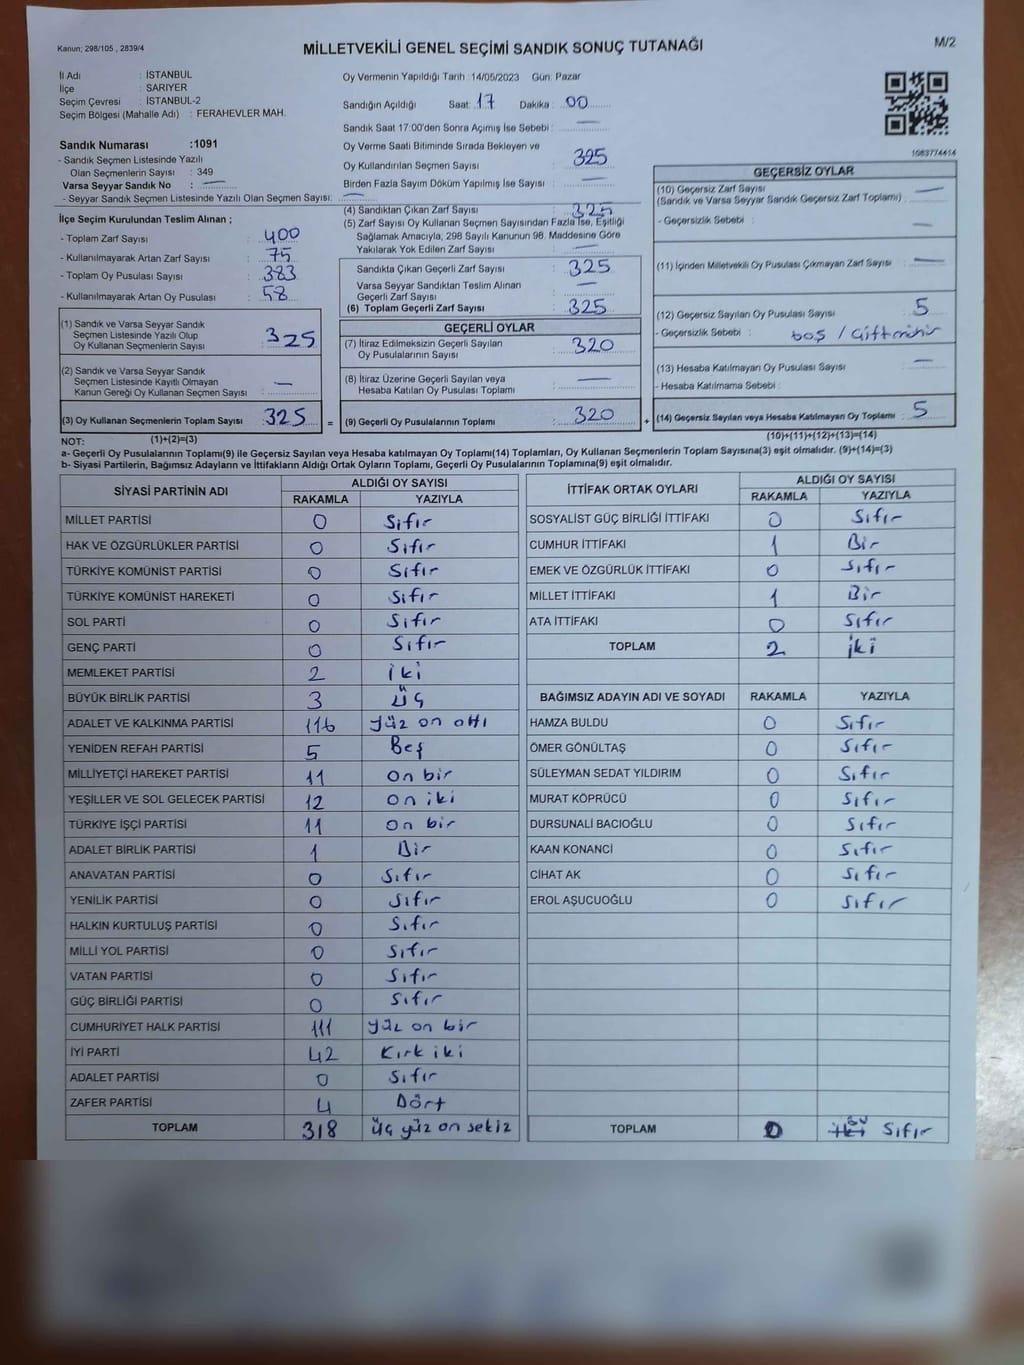 Kanun; 298/105 , 2839/4
MİLLETVEKİLİ GENEL SEÇİMİ SANDIK SONUÇ TUTANAĞI
M/2
İl Adı : İSTANBUL
İlçe : SARIYER
Seçim Çevresi : İSTANBUL-2
Seçim Bölgesi (Mahalle Adı) : FERAHEVLER MAH.
Oy Vermenin Yapıldığı Tarih :14/05/2023 Gün: Pazar
Sandığın Açıldığı Saat: 17 Dakika : 00
Sandık Saat 17:00'den Sonra Açımış İse Sebebi : —
Oy Verme Saati Bitiminde Sırada Bekleyen ve
Oy Kullandırılan Seçmen Sayısı : 325
Birden Fazla Sayım Döküm Yapılmış İse Sayısı : —
1083774414
Sandık Numarası :1091
- Sandık Seçmen Listesinde Yazılı
Olan Seçmenlerin Sayısı : 349
Varsa Seyyar Sandık No : —
- Seyyar Sandık Seçmen Listesinde Yazılı Olan Seçmen Sayısı: —
İlçe Seçim Kurulundan Teslim Alınan ;
- Toplam Zarf Sayısı : 400
- Kullanılmayarak Artan Zarf Sayısı : 75
- Toplam Oy Pusulası Sayısı : 383
- Kullanılmayarak Artan Oy Pusulası : 58
(1) Sandık ve Varsa Seyyar Sandık
Seçmen Listesinde Yazılı Olup
Oy Kullanan Seçmenlerin Sayısı : 325
(2) Sandık ve Varsa Seyyar Sandık
Seçmen Listesinde Kayıtlı Olmayan
Kanun Gereği Oy Kullanan Seçmen Sayısı : —
(3) Oy Kullanan Seçmenlerin Toplam Sayısı : 325 =
(4) Sandıktan Çıkan Zarf Sayısı : 325
(5) Zarf Sayısı Oy Kullanan Seçmen Sayısından Fazla İse, Eşitliği
Sağlamak Amacıyla, 298 Sayılı Kanunun 98. Maddesine Göre
Yakılarak Yok Edilen Zarf Sayısı : —
Sandıkta Çıkan Geçerli Zarf Sayısı : 325
Varsa Seyyar Sandıktan Teslim Alınan
Geçerli Zarf Sayısı : —
(6) Toplam Geçerli Zarf Sayısı : 325
GEÇERLİ OYLAR
(7) İtiraz Edilmeksizin Geçerli Sayılan
Oy Pusulalarının Sayısı : 320
(8) İtiraz Üzerine Geçerli Sayılan veya
Hesaba Katılan Oy Pusulası Toplamı : —
(9) Geçerli Oy Pusulalarının Toplamı : 320 +
GEÇERSİZ OYLAR
(10) Geçersiz Zarf Sayısı
(Sandık ve Varsa Seyyar Sandık Geçersiz Zarf Toplamı) : —
- Geçersizlik Sebebi : —
(11) İçinden Milletvekili Oy Pusulası Çıkmayan Zarf Sayısı : —
(12) Geçersiz Sayılan Oy Pusulası Sayısı : 5
- Geçersizlik Sebebi : boş / Çift mühür
(13) Hesaba Katılmayan Oy Pusulası Sayısı : —
- Hesaba Katılmama Sebebi :
(14) Geçersiz Sayılan veya Hesaba Katılmayan Oy Toplamı : 5
NOT: (1)+(2)=(3)
(10)+(11)+(12)+(13)=(14)
a- Geçerli Oy Pusulalarının Toplamı(9) ile Geçersiz Sayılan veya Hesaba katılmayan Oy Toplamı(14) Toplamları, Oy Kullanan Seçmenlerin Toplam Sayısına(3) eşit olmalıdır. (9)+(14)=(3)
b- Siyasi Partilerin, Bağımsız Adayların ve İttifakların Aldığı Ortak Oyların Toplamı, Geçerli Oy Pusulalarının Toplamına(9) eşit olmalıdır.
SİYASİ PARTİNİN ADI ALDIĞI OY SAYISI
RAKAMLA YAZIYLA
MİLLET PARTİSİ 0 Sıfır
HAK VE ÖZGÜRLÜKLER PARTİSİ 0 Sıfır
TÜRKİYE KOMÜNİST PARTİSİ 0 Sıfır
TÜRKİYE KOMÜNİST HAREKETİ 0 Sıfır
SOL PARTİ 0 Sıfır
GENÇ PARTİ 0 Sıfır
MEMLEKET PARTİSİ 2 iki
BÜYÜK BİRLİK PARTİSİ 3 Üç
ADALET VE KALKINMA PARTİSİ 116 Yüz on altı
YENİDEN REFAH PARTİSİ 5 Beş
MİLLİYETÇİ HAREKET PARTİSİ 11 On bir
YEŞİLLER VE SOL GELECEK PARTİSİ 12 on iki
TÜRKİYE İŞÇİ PARTİSİ 11 On bir
ADALET BİRLİK PARTİSİ 1 Bir
ANAVATAN PARTİSİ 0 Sıfır
YENİLİK PARTİSİ 0 Sıfır
HALKIN KURTULUŞ PARTİSİ 0 Sıfır
MİLLİ YOL PARTİSİ 0 Sıfır
VATAN PARTİSİ 0 Sıfır
GÜÇ BİRLİĞİ PARTİSİ 0 Sıfır
CUMHURİYET HALK PARTİSİ 111 Yüz on bir
İYİ PARTİ 42 Kırk iki
ADALET PARTİSİ 0 Sıfır
ZAFER PARTİSİ 4 Dört
TOPLAM 318 Üç yüz on sekiz
İTTİFAK ORTAK OYLARI ALDIĞI OY SAYISI
RAKAMLA YAZIYLA
SOSYALİST GÜÇ BİRLİĞİ İTTİFAKI 0 Sıfır
CUMHUR İTTİFAKI 1 Bir
EMEK VE ÖZGÜRLÜK İTTİFAKI 0 Sıfır
MİLLET İTTİFAKI 1 Bir
ATA İTTİFAKI 0 Sıfır
TOPLAM 2 iki
BAĞIMSIZ ADAYIN ADI VE SOYADI RAKAMLA YAZIYLA
HAMZA BULDU 0 Sıfır
ÖMER GÖNÜLTAŞ 0 Sıfır
SÜLEYMAN SEDAT YILDIRIM 0 Sıfır
MURAT KÖPRÜCÜ 0 Sıfır
DURSUNALİ BACIOĞLU 0 Sıfır
KAAN KONANCİ 0 Sıfır
CİHAT AK 0 Sıfır
EROL AŞUCUOĞLU 0 Sıfır
TOPLAM 0 Sıfır